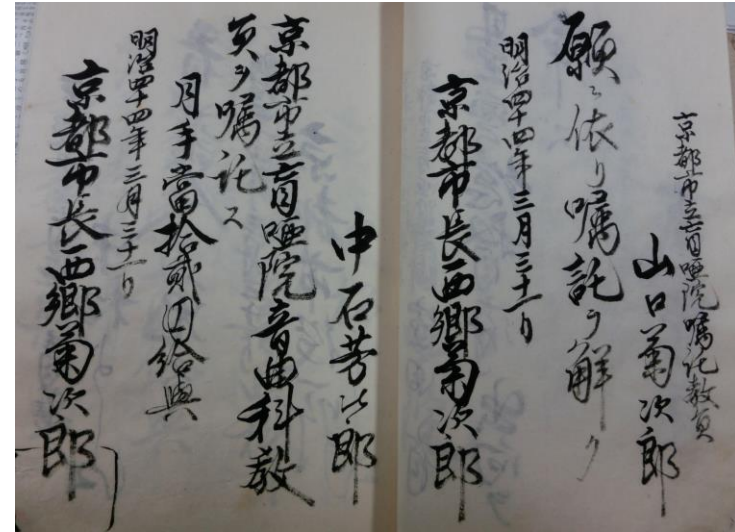 京都市立盲唖院嘱託教員
山口菊次郎
願ニ依リ嘱託ヲ解ク
明治四十四年三月三十一日
京都市長西郷菊次郎
中石芳次郎
京都市立盲唖院音曲科教
員ヲ嘱託ス
月手當拾貳円給與
明治四十四年三月三十一日
京都市長西郷菊次郎